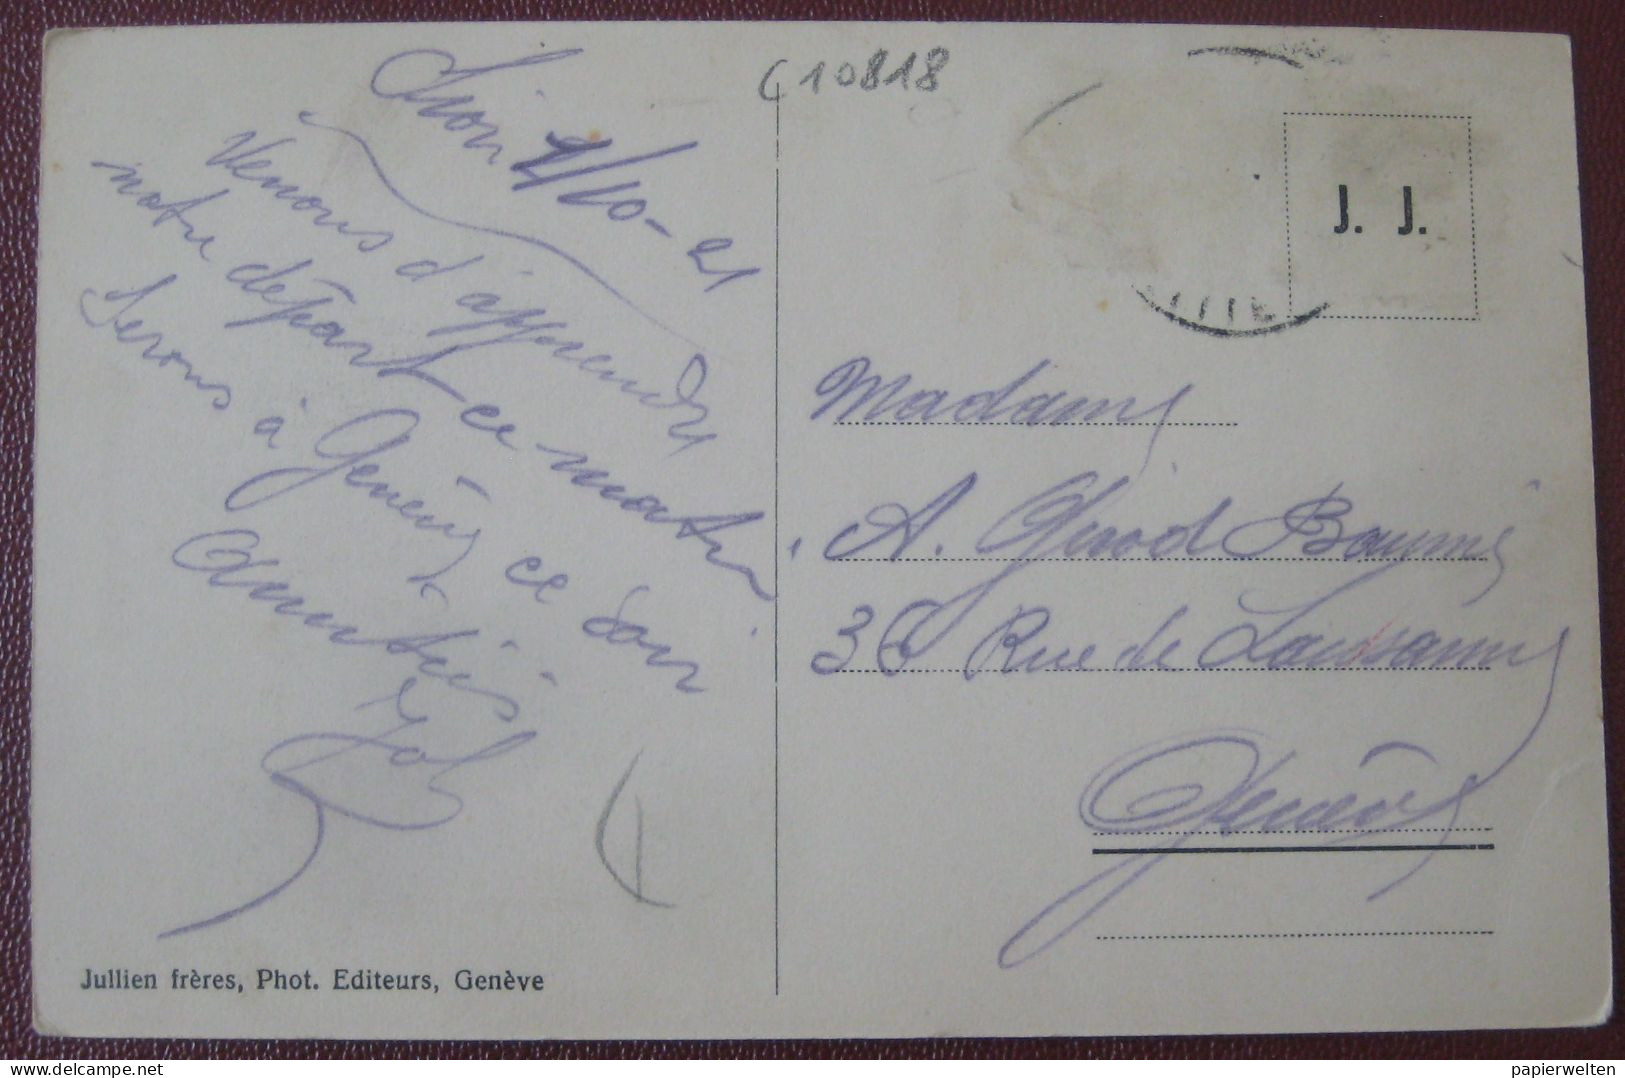 C10818
Sion 2/10-21
Venons d'apprendre
notre départ ce matin
Serons à Genève ce soir
Amitiés
J. J.
Madame
A. Girod
36 Rue de Lausanne
Genève
Jullien frères, Phot. Editeurs, Genève
papierwelten